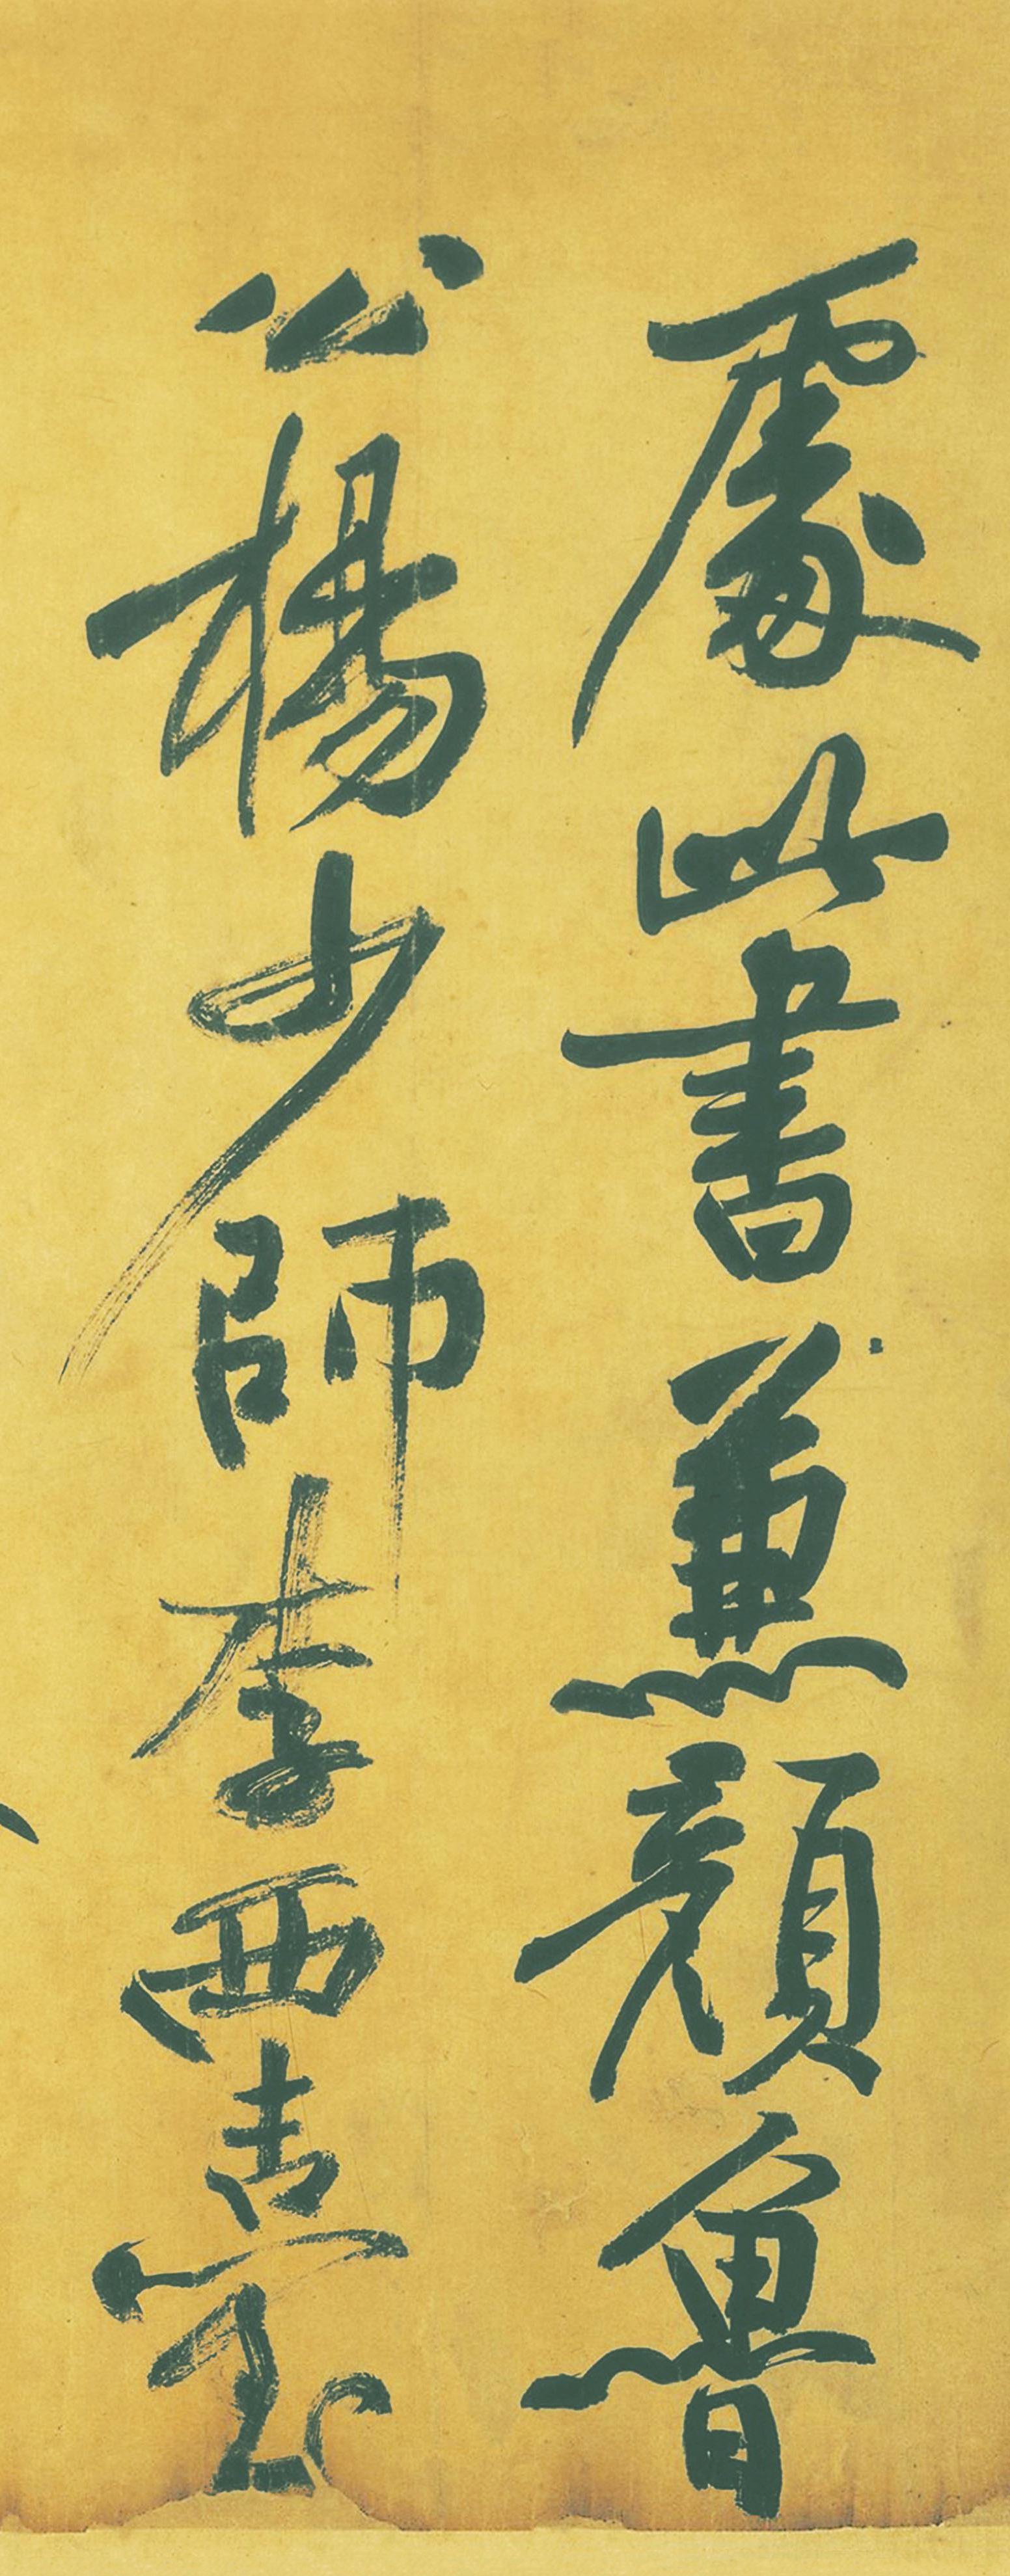 處此書兼顏魯
公楊少師李西臺